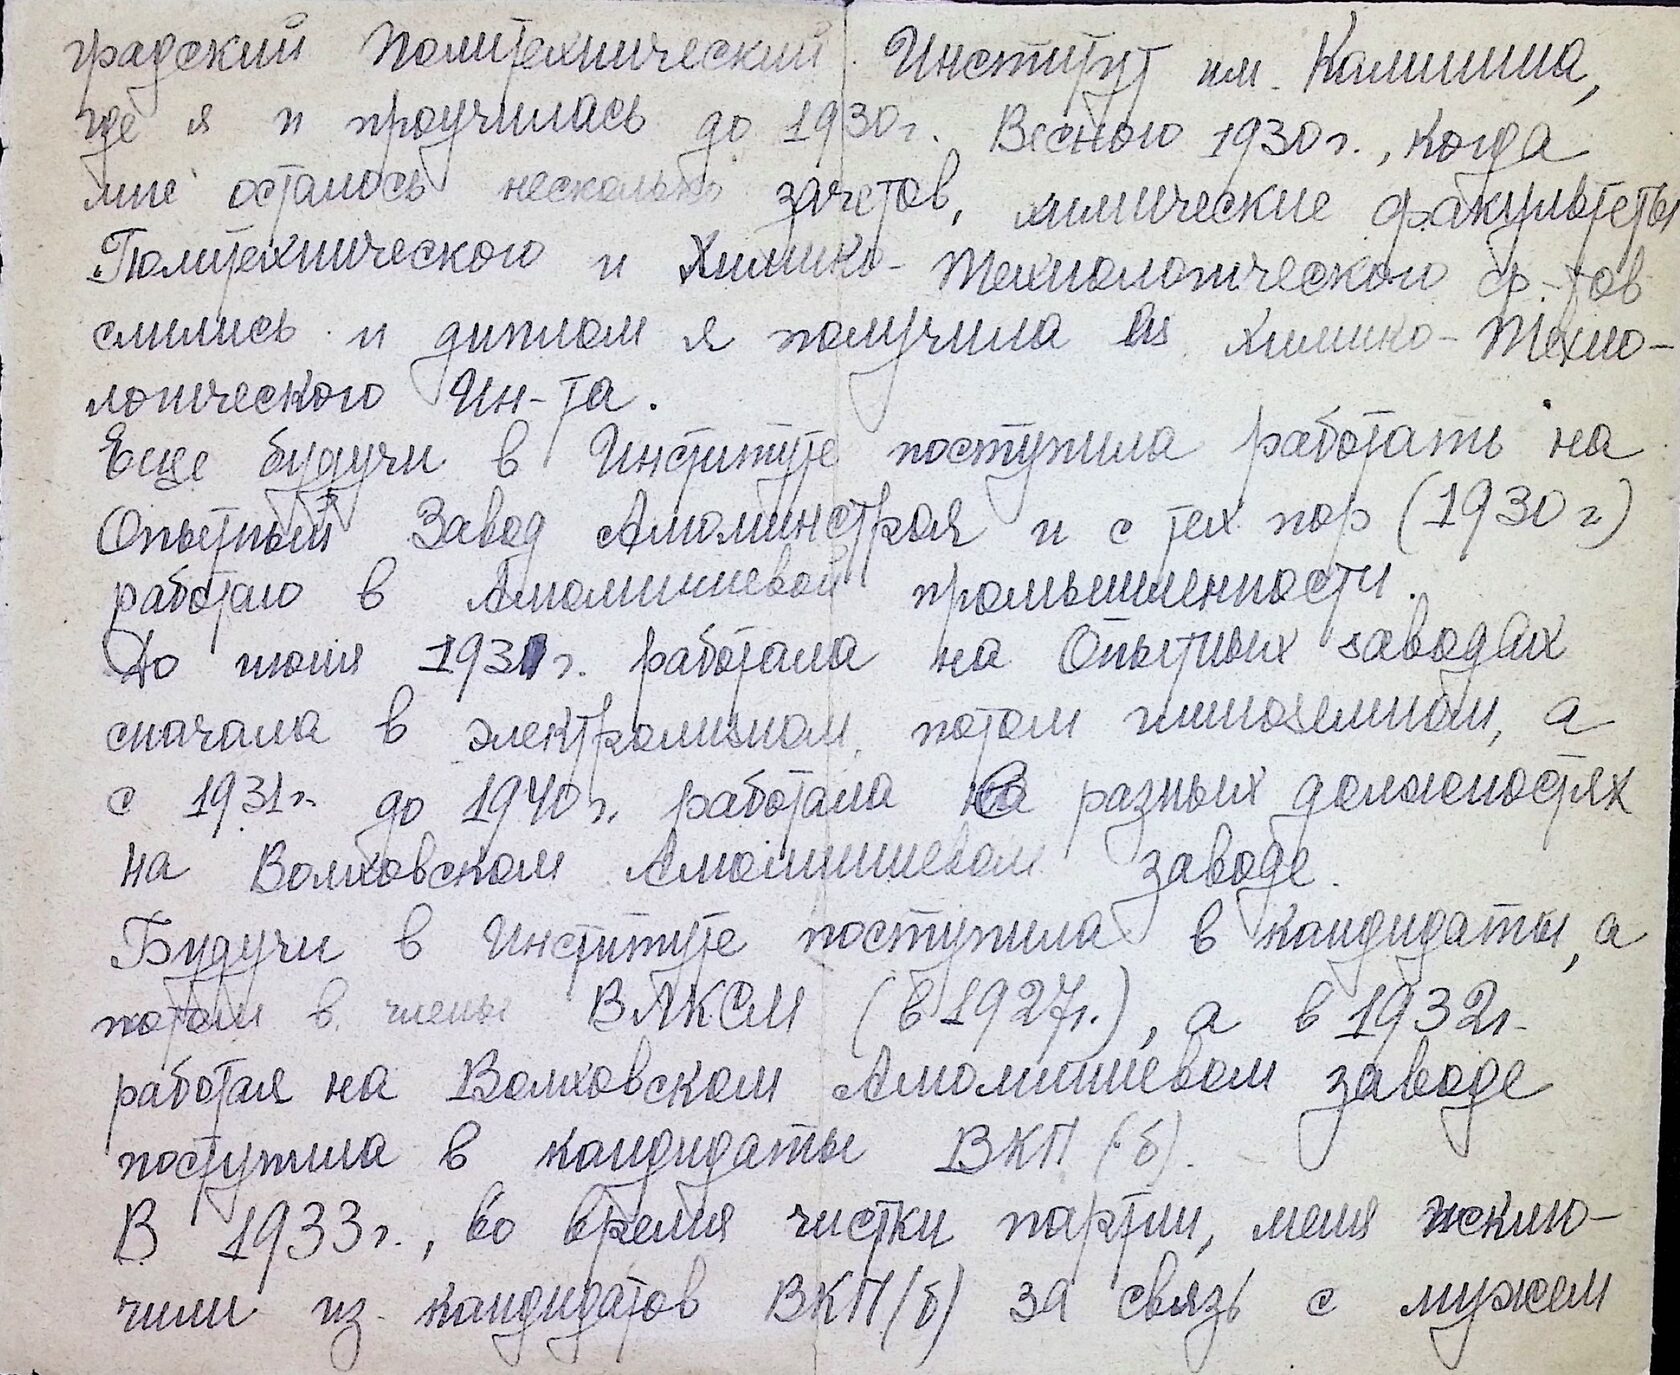 градский Политехнический Институт им. Калинина,
где я и проучилась до 1930г. Весною 1930г., когда
мне осталось несколько зачетов, химические факультеты
Политехнического и Химико-Технологического ф-тов
слились и диплом я получила из Химико-Техно-
логического Ин-та.
Еще будучи в Институте поступила работать на
Опытный Завод Алюминстроя и с тех пор (1930г)
работаю в Алюминиевой промышленности.
До июня 1931г. работала на Опытных заводах
сначала в электролизном, потом глиноземном, а
с 1931г. до 1940г. работала на разных должностях
на Волховском Алюминиевом заводе.
Будучи в Институте поступила в кандидаты, а
потом в члены ВЛКСМ (в 1927г.), а в 1932г.
работая на Волховском Алюминиевом заводе
поступила в кандидаты ВКП(б).
В 1933г., во время чистки партии, меня исклю-
чили из кандидатов ВКП/б) за связь с мужем